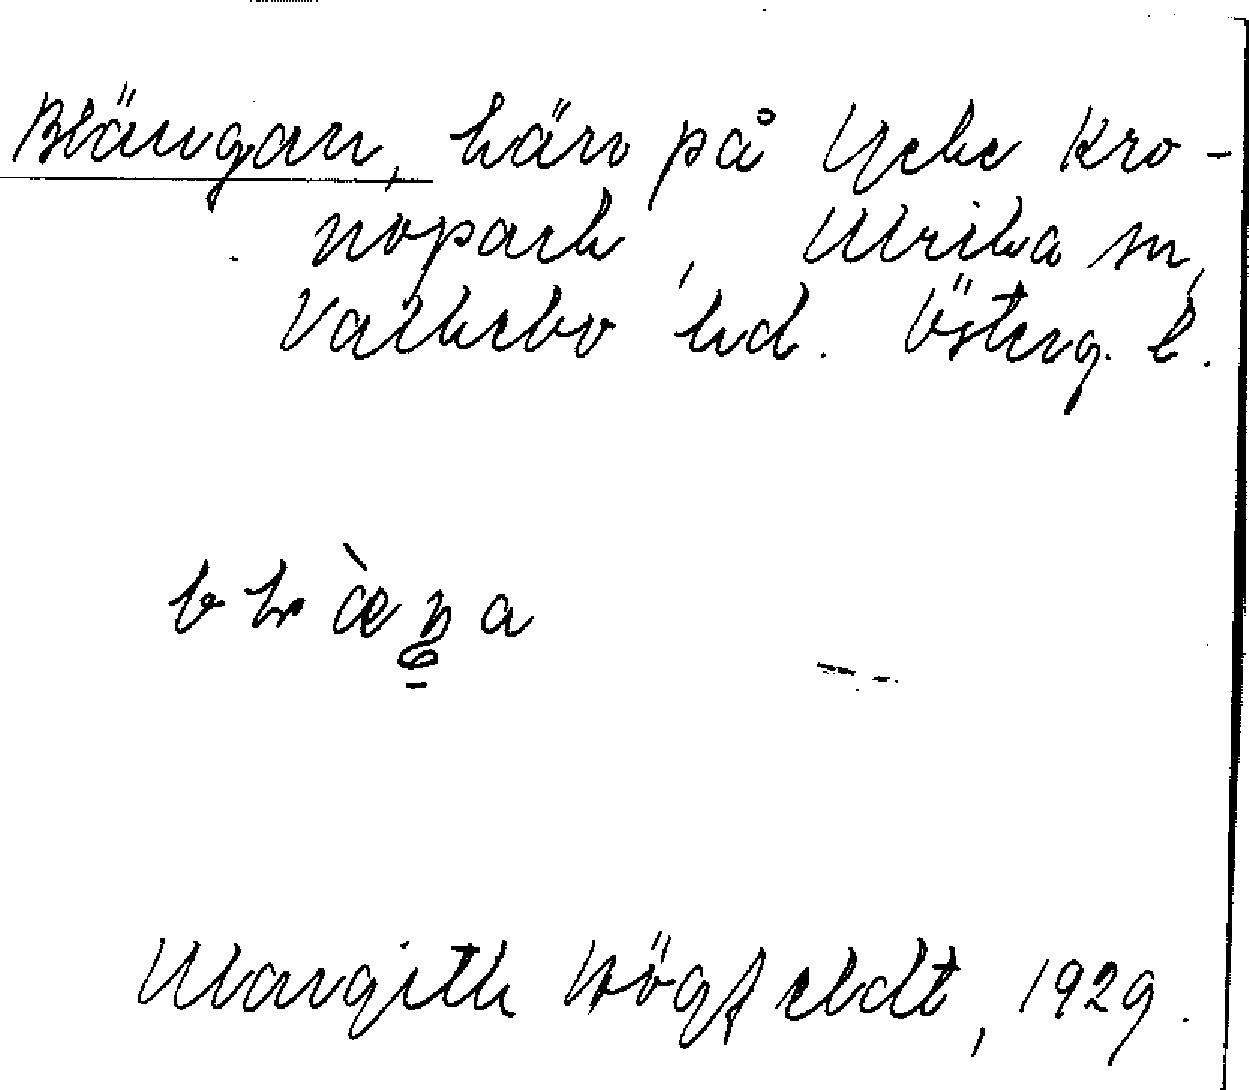 Blängan, kärr på Yxbe Kro-
nopark, Ulrika sn,
Valkebo hd. Österg. l.
Margith Högfeldt, 1929.